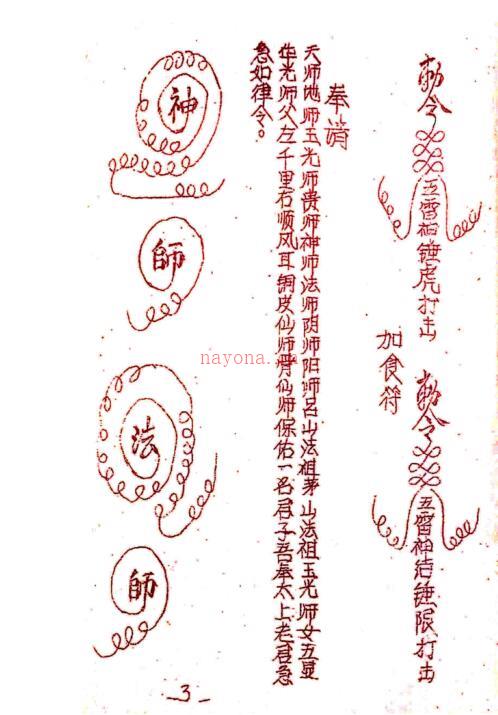 勅令
五雷神锤虎打击
勅令
五雷神结锤限打击
加食符
奉请
天师地师玉光师贵师神师法师阴师阳师吕山法祖茅山法祖玉光师女五显
华光师父左千里右顺风耳铜皮仙师骨仙师保佑一名君子吾奉太上老君急
急如律令。
神
師
法
師
-3-